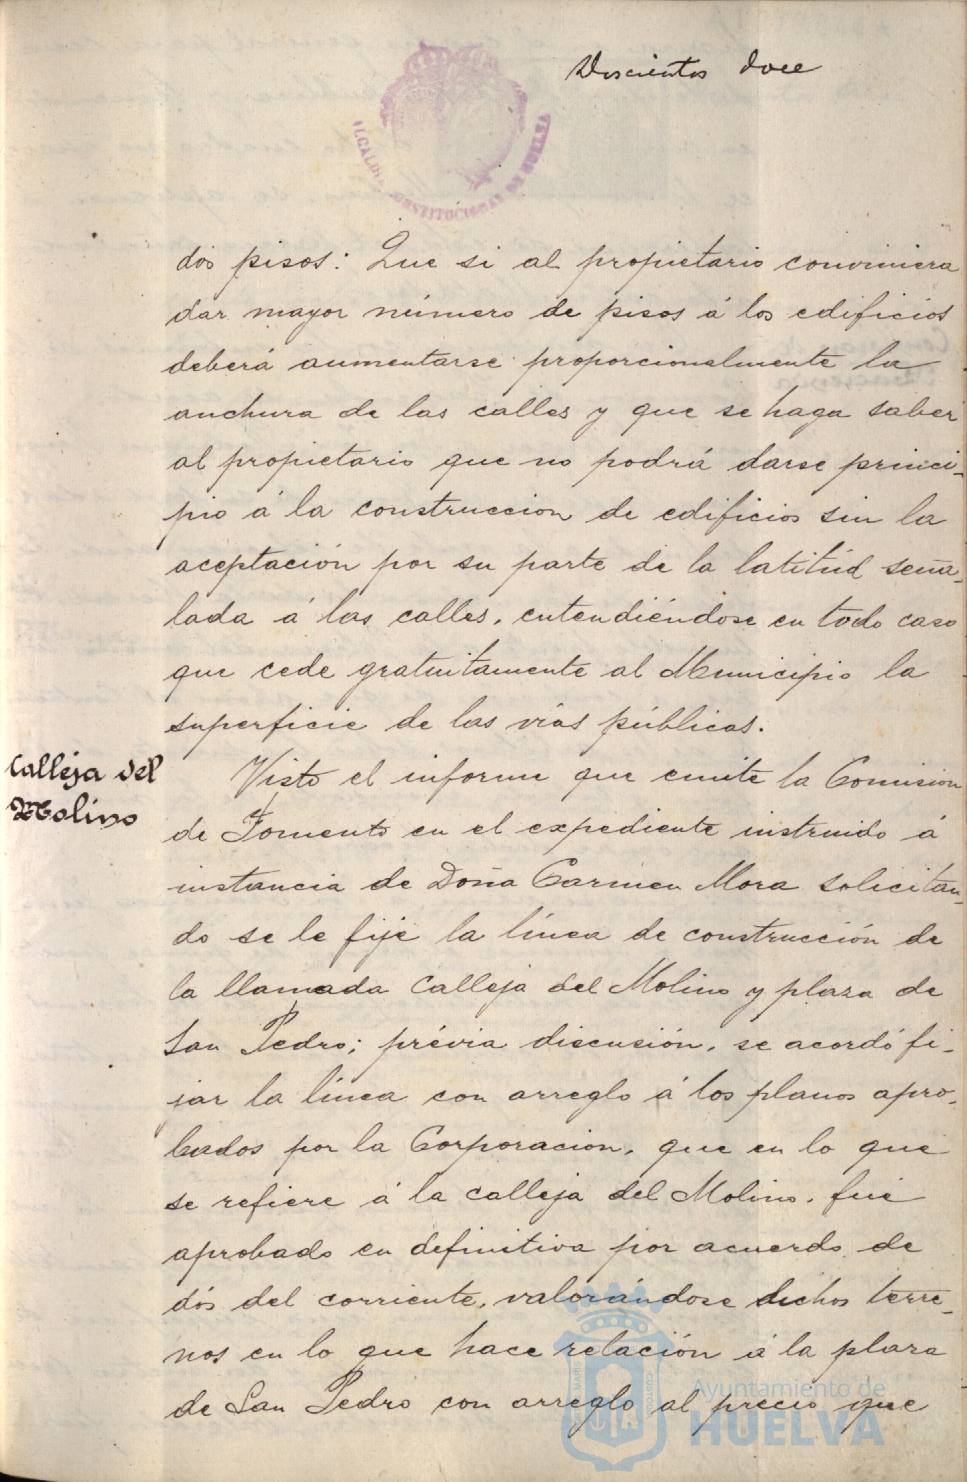 Doscientos doce
ALCALDIA CONSTITUCIONAL DE HUELVA
dós pisos: Que si al propietario conviniera
dar mayor número de pisos á los edificios
deberá aumentarse proporcionalmente la
anchura de las calles y que se haga saber
al propietario que no podrá darse princi-
pio á la construccion de edificios sin la
aceptación por su parte de la latitúd seña-
lada á las calles, entendiéndose en todo caso
que cede gratuitamente al Municipio la
superficie de las vias públicas.
Calleja del
Molino
Visto el informe que emite la Comision
de Fomento en el expediente instruido á
instancia de Doña Carmen Mora solicitan-
do se le fije la línea de construcción de
la llamada Calleja del Molino y plaza de
San Pedro; prévia discusión, se acordó fi-
jar la línea con arreglo á los planos apro-
bados por la Corporacion, que en lo que
se refiere á la calleja del Molino, fué
aprobado en definitiva por acuerdo de
dós del corriente, valorándose dichos terre-
nos en lo que hace relación á la plaza
de San Pedro con arreglo al precio que
Ayuntamiento de
HUELVA